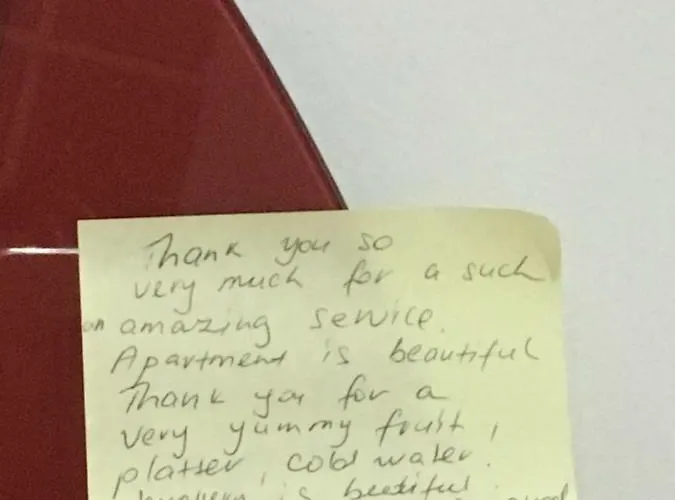 Thank you so
very much for a such
an amazing service.
Apartment is beautiful
Thank you for a
very yummy fruit,
platter, cold water.
is beutiful.